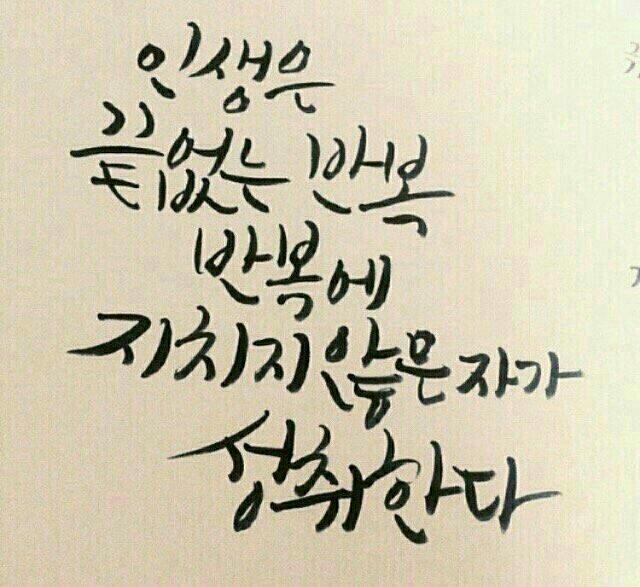 인생은
끝없는 반복
반복에
지치지 않은 자가
성취한다